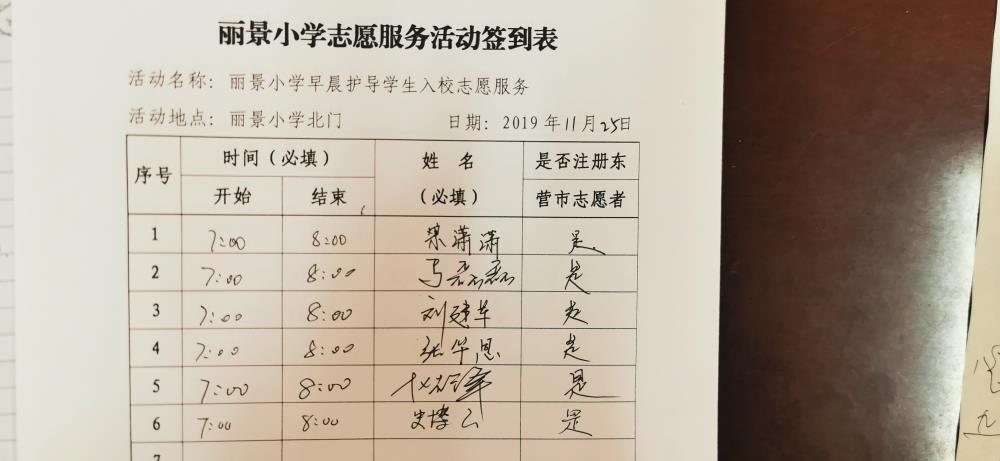 丽景小学志愿服务活动签到表
活动名称：丽景小学早晨护导学生入校志愿服务
活动地点：丽景小学北门 日期：2019年11月25日
序号 时间（必填） 姓名（必填） 是否注册东营市志愿者
开始 结束
1 7:00 8:00 荣潇潇 是
2 7:00 8:00 马磊磊 是
3 7:00 8:00 刘建华 是
4 7:00 8:00 张华恩 是
5 7:00 8:00 是
6 7:00 8:00 史博云 是
7